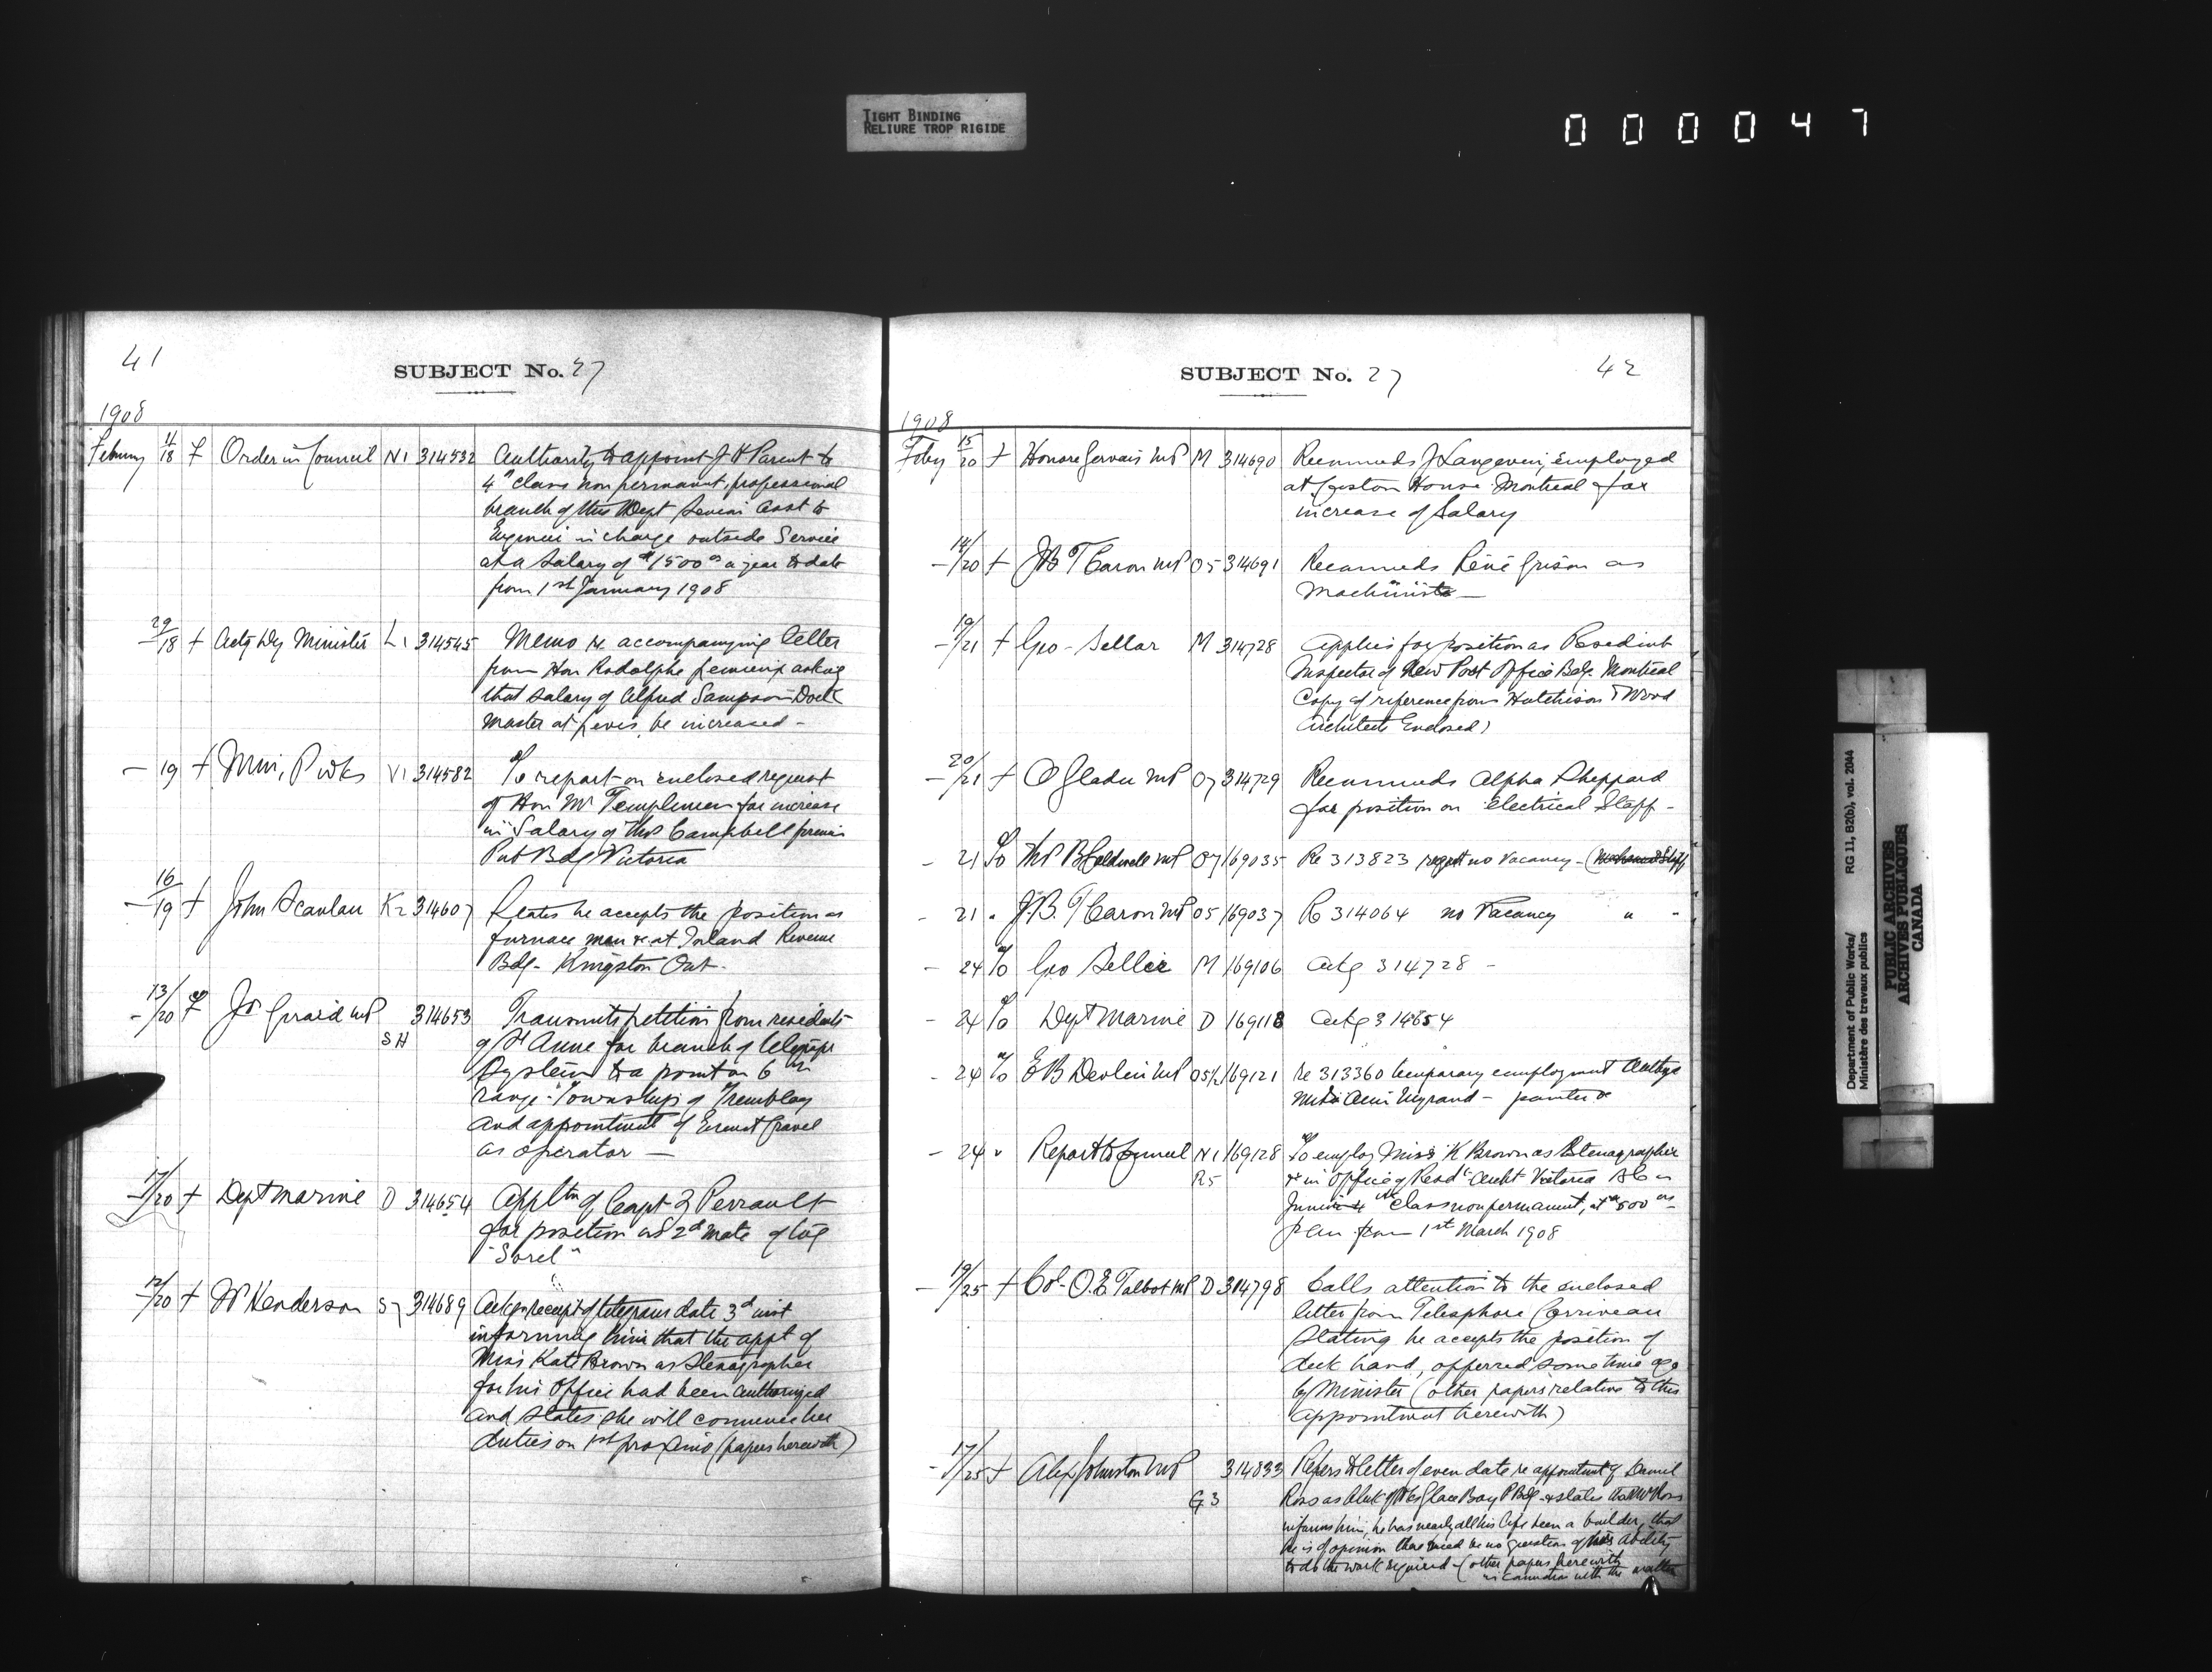 TIGHT BINDING
RELIURE TROP RIGIDE
000047
41
SUBJECT No. 27
1908
February 11/18 + Order in Council N1 314532 Authority to appoint J H Parent to
4th class non permanent, professional
branch of this Dept Senior Asst to
Engineer in charge outside Service
at a salary of $1500.00 a year to date
from 1st January 1908
— 29/18 + Actg Dy Minister L1 314545 Memo re accompanying letter
from Hon Rodolphe Lemieux asking
that salary of Alfred Sampson Dock
Master at Levis, be increased -
— 19 + Min, P Wks V1 314582 To report on enclosed request
of Hon Mr Templeman for increase
in Salary of Thos Campbell
Pub Bdg Victoria
— 16/19 + John Scanlan K2 314607 States he accepts the position as
furnace man &c at Inland Revenue
Bdg - Kingston Ont -
— 13/20 + Js Girard MP SH 314653 Transmits petition from residents
of St Anne for branch of telegraph
System to a point on 6th
range - Townships of Tremblay
and appointment of Ernest Gravel
as operator —
— 17/20 + Dept Marine D 314654 Appltn of Capt Z Perrault
for position as 2d mate of tug
"Sorel"
12/20 + W Henderson S7 314689 Ackgs receipt of telegrams date 3d inst
informing him that the appt of
Miss Kate Brown as Stenographer
for his Office had been authorized
and states she will commence her
duties on 1st proximo (papers herewith)
SUBJECT No. 27
42
1908
Feby 15/20 + Honore Gervais MP M 314690 Recommends J Langevin, employed
at Custom House Montreal for
increase of Salary
— 14/20 + J B T Caron MP O5 314691 Recommends René Grison as
Machinist —
— 19/21 + Geo - Sellar M 314728 Applies for position as Resident
Inspector of New Post Office Bdg. Montreal
Copy of reference from Hutchison & Wood
Architects Enclosed)
— 20/21 + O Gladu MP O7 314729 Recommends Alpha Sheppard
for position on electrical Staff -
- 21 To Thos B Caldwell MP O7 169035 Re 313823 regret no vacancy - (Mechanical Staff
- 21 " J. B. T Caron MP O5 169037 Re 314064 no Vacancy " "
- 24 To Geo Seller M 169106 Ackg 314728 -
- 24 To Dept Marine D 169118 Ackg 314654
- 24 To E B Devlin MP O5½ 169121 re 313360 temporary employment
- painter &
- 24 " Report to Council N1 R5 169128 To employ Miss K Brown as Stenographer
& in Office of Resdt Archt Victoria B C -
Junior 4th Class non permanent, at $500.00
p an from 1st March 1908
- 19/25 + Col - O. E Talbot MP D 314798 Calls attention to the enclosed
letter from Telesphore Corriveau
Stating he accepts the position of
deck hand, offerred some time ago
by Minister (other papers relative to this
appointment herewith)
- 17/25 + Alex Johnston MP G3 314833 Refers to letter of even date re appointment of Daniel
Ross as Clerk of Wks Glace Bay P Bdg - & states that Mr Ross
informs him, he has nearly all his life been a builder, that
he is of opinion there need be no question of his ability
to do the work required - (other papers herewith
in connection with the matter
Department of Public Works/ RG 11, B2(b), vol. 2044
Ministère des travaux publics
PUBLIC ARCHIVES
ARCHIVES PUBLIQUES
CANADA